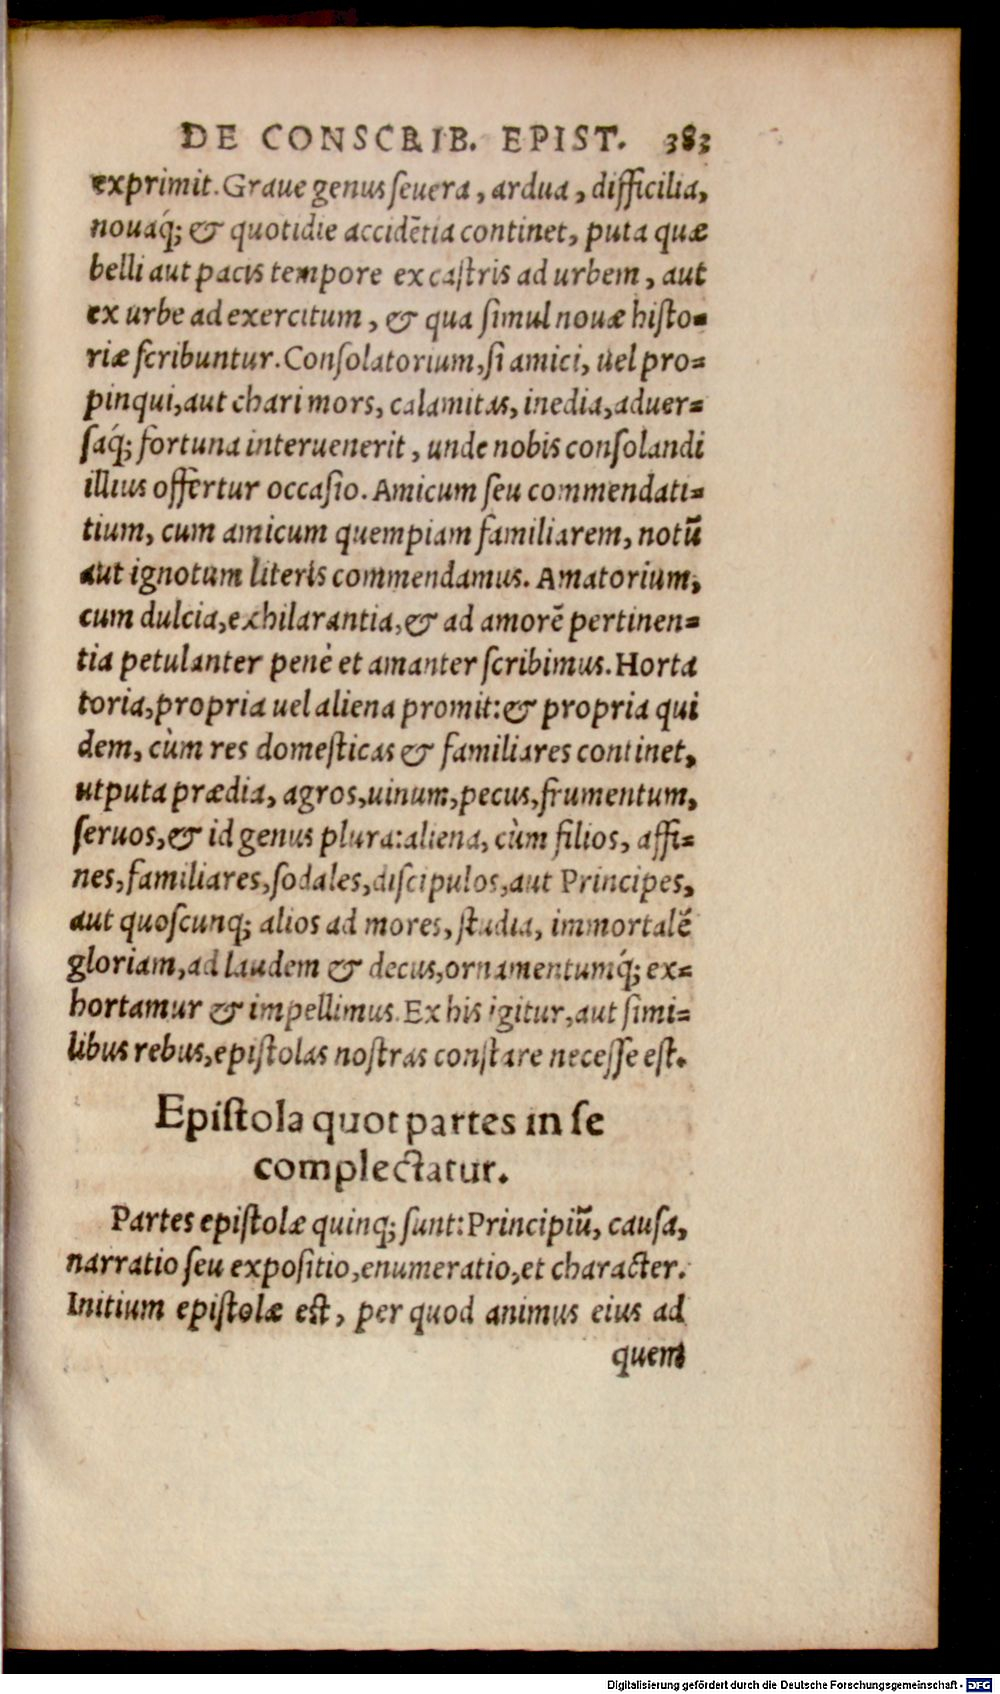 DE CONSCRIB. EPIST. 383
exprimit. Graue genus ſeuera, ardua, difficilia,
nouaq́; & quotidie accidẽtia continet, puta quæ
belli aut pacis tempore ex caſtris ad urbem, aut
ex urbe ad exercitum, & qua ſimul nouæ hiſto-
riæ ſcribuntur. Conſolatorium, ſi amici, uel pro-
pinqui, aut chari mors, calamitas, inedia, aduer-
ſaq́; fortuna interuenerit, unde nobis conſolandi
illius offertur occaſio. Amicum ſeu commendati-
tium, cum amicum quempiam familiarem, notũ
aut ignotum literis commendamus. Amatorium,
cum dulcia, exhilarantia, & ad amorẽ pertinen-
tia petulanter penè et amanter ſcribimus. Horta
toria, propria uel aliena promit: & propria qui
dem, cùm res domeſticas & familiares continet,
utputa prædia, agros, uinum, pecus, frumentum,
ſeruos, & id genus plura: aliena, cùm filios, affi-
nes, familiares, ſodales, diſcipulos, aut Principes,
aut quoſcunq; alios ad mores, ſtudia, immortalẽ
gloriam, ad laudem & decus, ornamentumq́; ex-
hortamur & impellimus. Ex his igitur, aut ſimi-
libus rebus, epiſtolas noſtras conſtare neceſſe eſt.
Epiſtola quot partes in ſe
complectatur.
Partes epiſtolæ quinq; ſunt: Principiũ, cauſa,
narratio ſeu expoſitio, enumeratio, et character.
Initium epiſtolæ eſt, per quod animus eius ad
quem
Digitalisierung gefördert durch die Deutsche Forschungsgemeinschaft - DFG